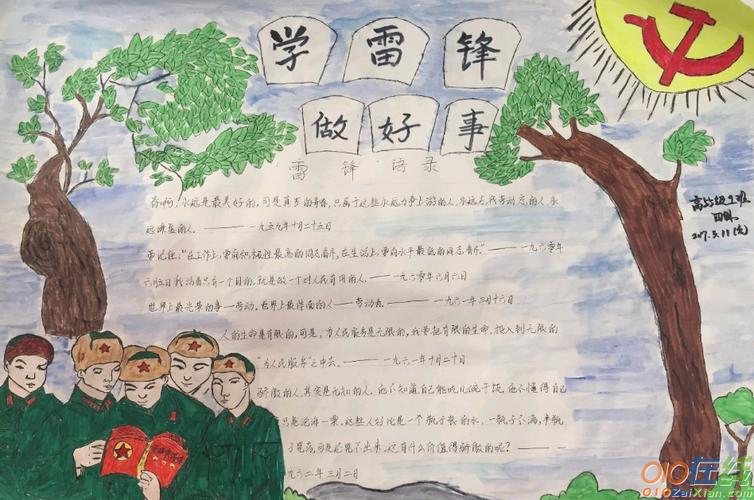 学雷锋
做好事
雷锋语录
青春啊,永远是美好的,可是真正的青春,只属于这些永远力争上游的人,永远忘我劳动的人,永
远谦虚的人。——一九五九年十月二十五日
要记住:"在工作上,要向积极性最高的同志看齐,在生活上,要向水平最低的同志看齐"——一九六零年
六月五日我活着只有一个目的,就是做一个对人民有用的人。——一九六零年六月六日
世界上最光荣的事——劳动。世界上最体面的人——劳动者。——一九六一年三月十六日
人的生命是有限的,可是,为人民服务是无限的,我要把有限的生命,投入到无限的
"为人民服务"之中去。——一九六一年十月二十日
骄傲的人,其实是无知的人,他不知道自己能吃几碗干饭,他不懂得自己
只是沧海一粟,这些人好比是一个瓶子装的水,一瓶子不满,半瓶
子晃荡,可是还晃不出来,这有什么值得骄傲的呢?——
九六二年三月二日
2017.3.11
010在线
010zaixian.com